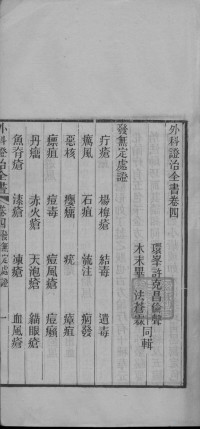 外科證治全書卷四
環峯許克昌倫聲
木末畢 法蒼霖
同輯
發無定處證
疔瘡 楊梅瘡 結毒 遺毒
癘風 石疽 流注 痼發
惡核 癭瘤 疣 瘴疽
瘭疽 痘毒 痘風瘡 痘癩
丹瘤 赤火瘡 天泡瘡 貓眼瘡
魚脊瘡 漆瘡 凍瘡 血風瘡
外科證治全書 卷四發無定處證 一